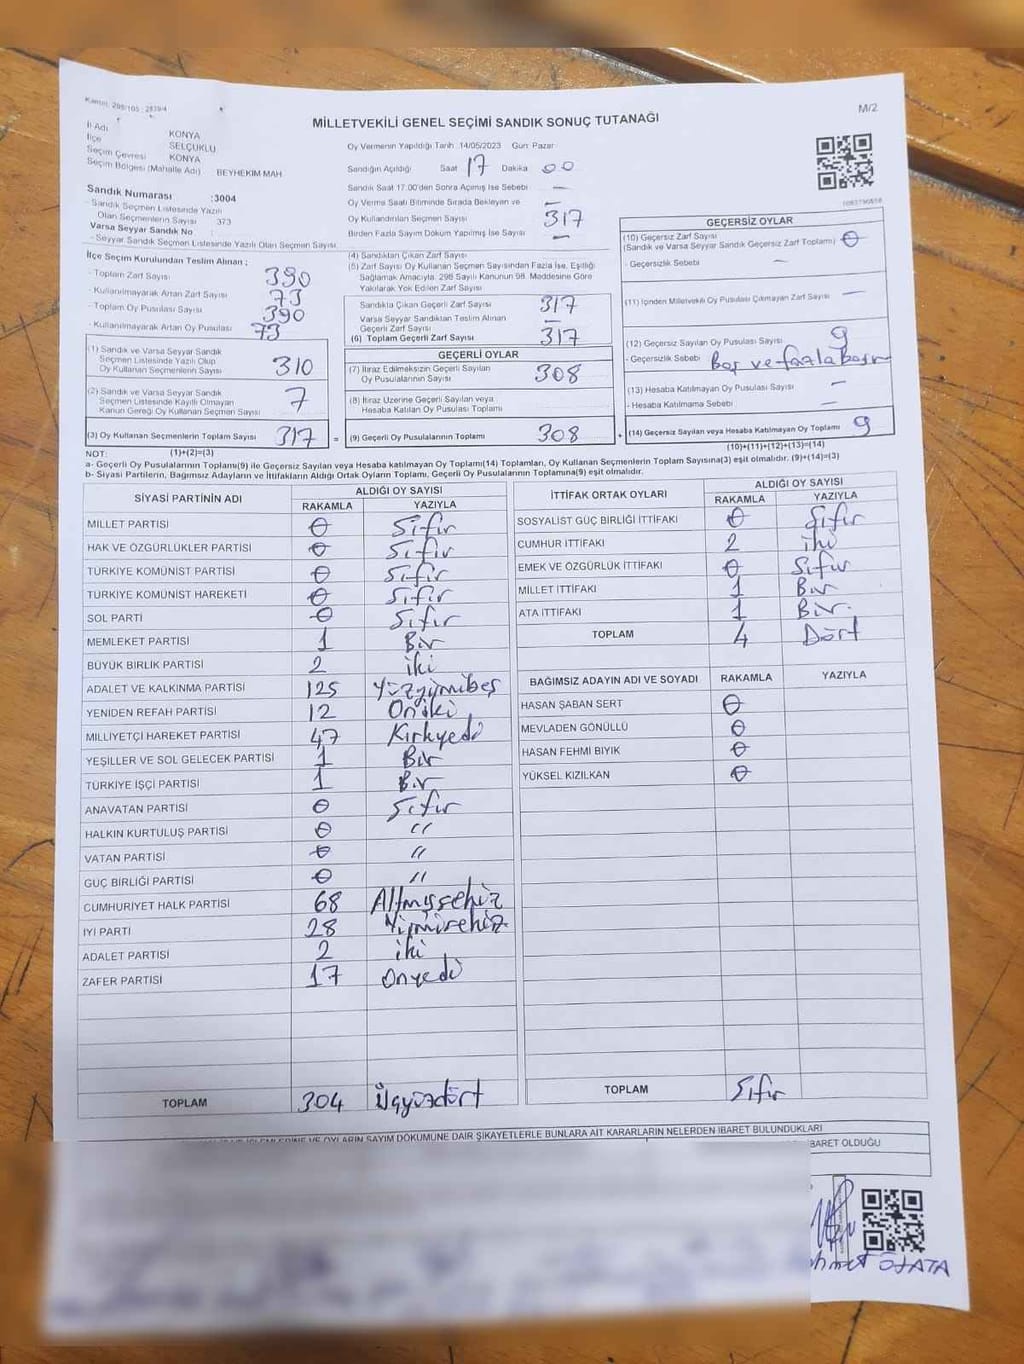 M/2
MİLLETVEKİLİ GENEL SEÇİMİ SANDIK SONUÇ TUTANAĞI
İl Adı KONYA
İlçe SELÇUKLU
Seçim Çevresi KONYA
Seçim Bölgesi (Mahalle Adı) BEYHEKİM MAH
Sandık Numarası :3004
- Sandık Seçmen Listesinde Yazılı
Olan Seçmenlerin Sayısı 373
Varsa Seyyar Sandık No :
- Seyyar Sandık Seçmen Listesinde Yazılı Olan Seçmen Sayısı
Oy Vermenin Yapıldığı Tarih :14/05/2023 Gün: Pazar
Sandığın Açıldığı Saat 17 Dakika 00
Sandık Saat 17.00'den Sonra Açılmış İse Sebebi —
Oy Verme Saati Bitiminde Sırada Bekleyen ve —
Oy Kullandırılan Seçmen Sayısı 317
Birden Fazla Sayım Döküm Yapılmış İse Sayısı —
İlçe Seçim Kurulundan Teslim Alınan ;
- Toplam Zarf Sayısı 390
- Kullanılmayarak Artan Zarf Sayısı 73
- Toplam Oy Pusulası Sayısı 390
- Kullanılmayarak Artan Oy Pusulası 73
(1) Sandık ve Varsa Seyyar Sandık
Seçmen Listesinde Yazılı Olup
Oy Kullanan Seçmenlerin Sayısı 310
(2) Sandık ve Varsa Seyyar Sandık
Seçmen Listesinde Kayıtlı Olmayan
Kanun Gereği Oy Kullanan Seçmen Sayısı 7
(3) Oy Kullanan Seçmenlerin Toplam Sayısı 317 =
(4) Sandıktan Çıkan Zarf Sayısı
(5) Zarf Sayısı Oy Kullanan Seçmen Sayısından Fazla İse, Eşitliği
Sağlamak Amacıyla, 298 Sayılı Kanunun 98. Maddesine Göre
Yakılarak Yok Edilen Zarf Sayısı
Sandıkta Çıkan Geçerli Zarf Sayısı 317
Varsa Seyyar Sandıktan Teslim Alınan
Geçerli Zarf Sayısı —
(6) Toplam Geçerli Zarf Sayısı 317
GEÇERLİ OYLAR
(7) İtiraz Edilmeksizin Geçerli Sayılan
Oy Pusulalarının Sayısı 308
(8) İtiraz Üzerine Geçerli Sayılan veya
Hesaba Katılan Oy Pusulası Toplamı
(9) Geçerli Oy Pusulalarının Toplamı 308 +
GEÇERSİZ OYLAR
(10) Geçersiz Zarf Sayısı
(Sandık ve Varsa Seyyar Sandık Geçersiz Zarf Toplamı) 0
- Geçersizlik Sebebi —
(11) İçinden Milletvekili Oy Pusulası Çıkmayan Zarf Sayısı —
(12) Geçersiz Sayılan Oy Pusulası Sayısı 9
- Geçersizlik Sebebi Boş ve fazla
(13) Hesaba Katılmayan Oy Pusulası Sayısı —
- Hesaba Katılmama Sebebi —
(14) Geçersiz Sayılan veya Hesaba Katılmayan Oy Toplamı 9
NOT: (1)+(2)=(3) (10)+(11)+(12)+(13)=(14)
a- Geçerli Oy Pusulalarının Toplamı(9) ile Geçersiz Sayılan veya Hesaba Katılmayan Oy Toplamı(14) Toplamları, Oy Kullanan Seçmenlerin Toplam Sayısına(3) eşit olmalıdır. (9)+(14)=(3)
b- Siyasi Partilerin, Bağımsız Adayların ve İttifakların Aldığı Ortak Oyların Toplamı, Geçerli Oy Pusulalarının Toplamına(9) eşit olmalıdır.
SİYASİ PARTİNİN ADI ALDIĞI OY SAYISI
RAKAMLA YAZIYLA
MİLLET PARTİSİ 0 Sıfır
HAK VE ÖZGÜRLÜKLER PARTİSİ 0 Sıfır
TÜRKİYE KOMÜNİST PARTİSİ 0 Sıfır
TÜRKİYE KOMÜNİST HAREKETİ 0 Sıfır
SOL PARTİ 0 Sıfır
MEMLEKET PARTİSİ 1 Bir
BÜYÜK BİRLİK PARTİSİ 2 iki
ADALET VE KALKINMA PARTİSİ 125 Yüzyirmibeş
YENİDEN REFAH PARTİSİ 12 Oniki
MİLLİYETÇİ HAREKET PARTİSİ 47 Kırkyedi
YEŞİLLER VE SOL GELECEK PARTİSİ 1 Bir
TÜRKİYE İŞÇİ PARTİSİ 1 Bir
ANAVATAN PARTİSİ 0 Sıfır
HALKIN KURTULUŞ PARTİSİ 0 "
VATAN PARTİSİ 0 "
GÜÇ BİRLİĞİ PARTİSİ 0 "
CUMHURİYET HALK PARTİSİ 68 Altmışsekiz
İYİ PARTİ 28 Yirmisekiz
ADALET PARTİSİ 2 iki
ZAFER PARTİSİ 17 Onyedi
TOPLAM 304 Üçyüzdört
İTTİFAK ORTAK OYLARI ALDIĞI OY SAYISI
RAKAMLA YAZIYLA
SOSYALİST GÜÇ BİRLİĞİ İTTİFAKI 0 Sıfır
CUMHUR İTTİFAKI 2 iki
EMEK VE ÖZGÜRLÜK İTTİFAKI 0 Sıfır
MİLLET İTTİFAKI 1 Bir
ATA İTTİFAKI 1 Bir.
TOPLAM 4 Dört
BAĞIMSIZ ADAYIN ADI VE SOYADI RAKAMLA YAZIYLA
HASAN ŞABAN SERT 0
MEVLADEN GÖNÜLLÜ 0
HASAN FEHMİ BIYIK 0
YÜKSEL KIZILKAN 0
TOPLAM Sıfır
OYLARIN SAYIM DÖKÜMÜNE DAİR ŞİKAYETLERLE BUNLARA AİT KARARLARIN NELERDEN İBARET BULUNDUKLARI
İBARET OLDUĞU